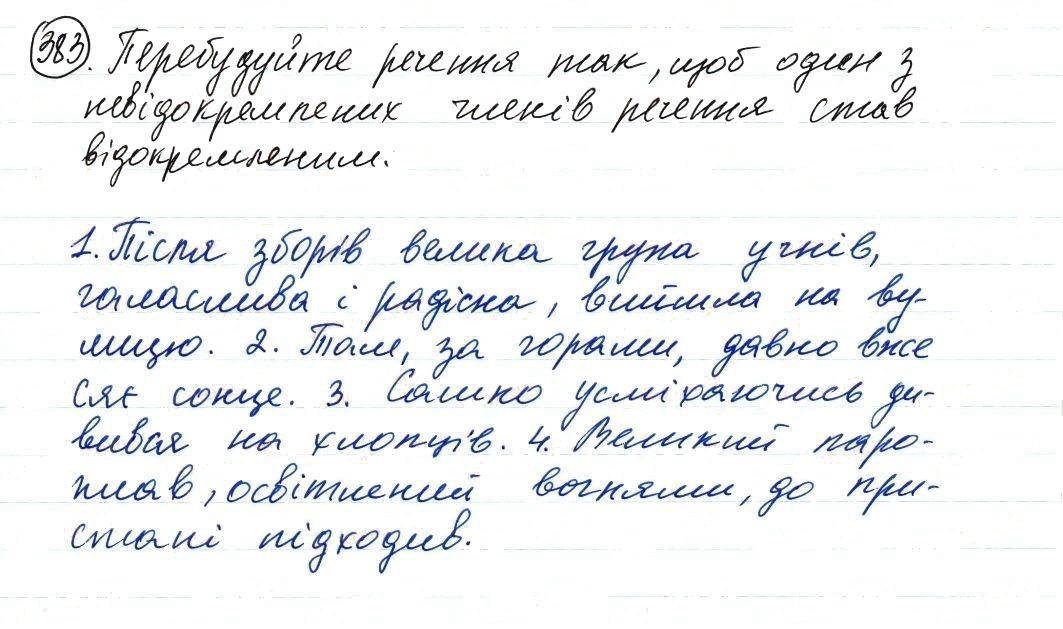 383. Перебудуйте речення так, щоб один з
невідокремлених членів речення став
відокремленим.
1. Після зборів велика група учнів,
галаслива і радісна, вийшла на ву-
лицю. 2. Там, за горами, давно вже
сяє сонце. 3. Сашко усміхаючись ди-
вився на хлопців. 4. Великий паро-
плав, освітлений вогнями, до при-
стані підходив.